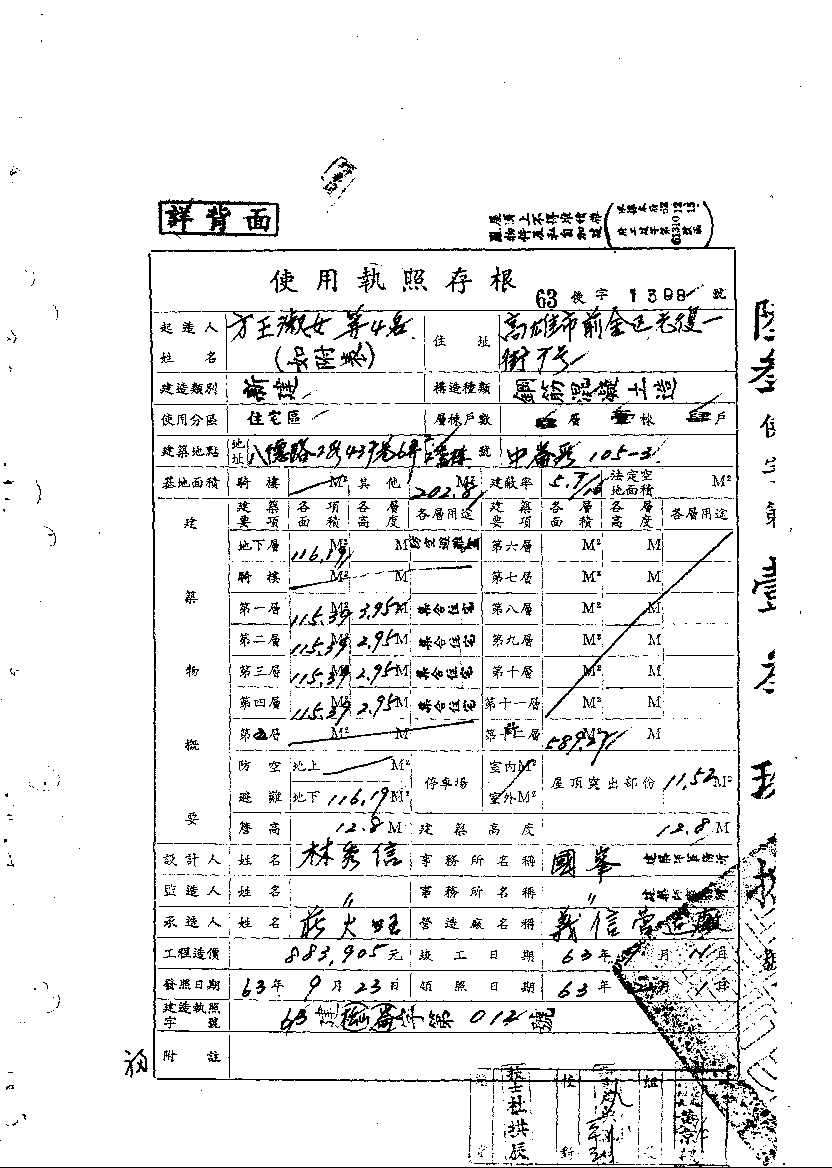 詳背面
使用執照存根
63 使字 1398 號
起造人姓名 方王淑女等4名(如附表) 住址 高雄市前金區光復一街7號
建造類別 新建 構造種類 鋼筋混凝土造
使用分區 住宅區 層棟戶數 層 棟 戶
建築地點 地址 八德路2段437巷6弄 號 中崙段 105-2
基地面積 騎樓 M² 其他 202.81 M² 建蔽率 5.7/10 法定空地面積 M²
建築物概要
建築要項 各項面積 各層高度 各層用途 建築要項 各層面積 各層高度 各層用途
地下層 116.19 M² M 第六層 M² M
騎樓 M² M 第七層 M² M
第一層 115.39 M² 3.95 M 集合住宅 第八層 M² M
第二層 115.39 M² 2.95 M 集合住宅 第九層 M² M
第三層 115.39 M² 2.95 M 集合住宅 第十層 M² M
第四層 115.39 M² 2.95 M 集合住宅 第十一層 M² M
第五層 M² M 第 層 589.27 M² M
防空避難 地上 M² 停車場 室內 M² 屋頂突出部份 11.52 M²
地下 116.19 M² 室外 M²
簷高 12.8 M 建築高度 12.8 M
設計人 姓名 林秀信 事務所名稱 國峯 建築師事務所
監造人 姓名 〃 事務所名稱 〃 建築師事務所
承造人 姓名 莊火旺 營造廠名稱 義信營造廠
工程造價 883,905 元 竣工日期 63 年 月 11 日
發照日期 63 年 9 月 23 日 領照日期 63 年 月 1 日
建造執照字號 63 建 字第 012 號
附註